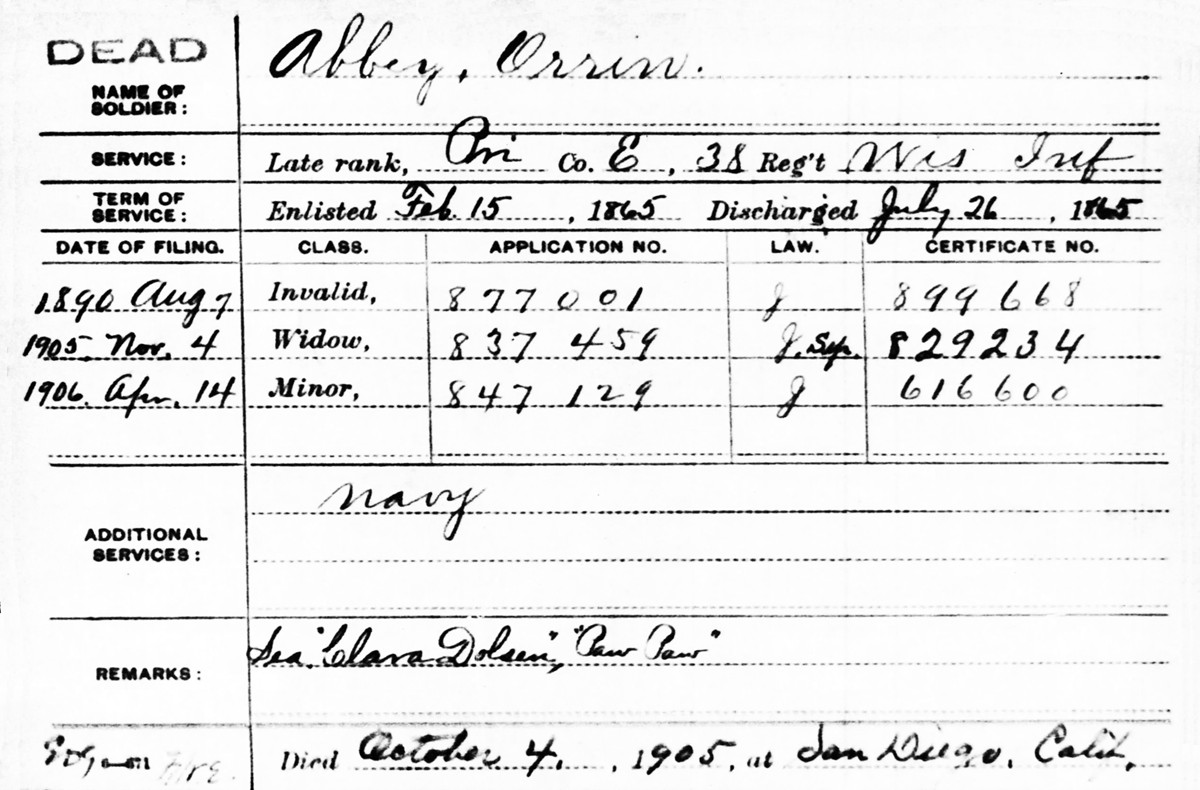 DEAD
Abbey, Orrin.
NAME OF
SOLDIER:
SERVICE: Late rank, Pri Co. E, 38 Reg't Wis Inf
TERM OF
SERVICE: Enlisted Feb. 15, 1865 Discharged July 26, 1865
DATE OF FILING. CLASS. APPLICATION NO. LAW. CERTIFICATE NO.
1890 Aug 7 Invalid, 877 001 J 899668
1905. Nov. 4 Widow, 837 459 J. Sep. 829234
1906. Apr. 14 Minor, 847 129 J 616600
Navy
ADDITIONAL
SERVICES:
Sea. "Clara Dolsen", "Paw Paw"
REMARKS:
Died October 4, 1905, at San Diego, Calif.